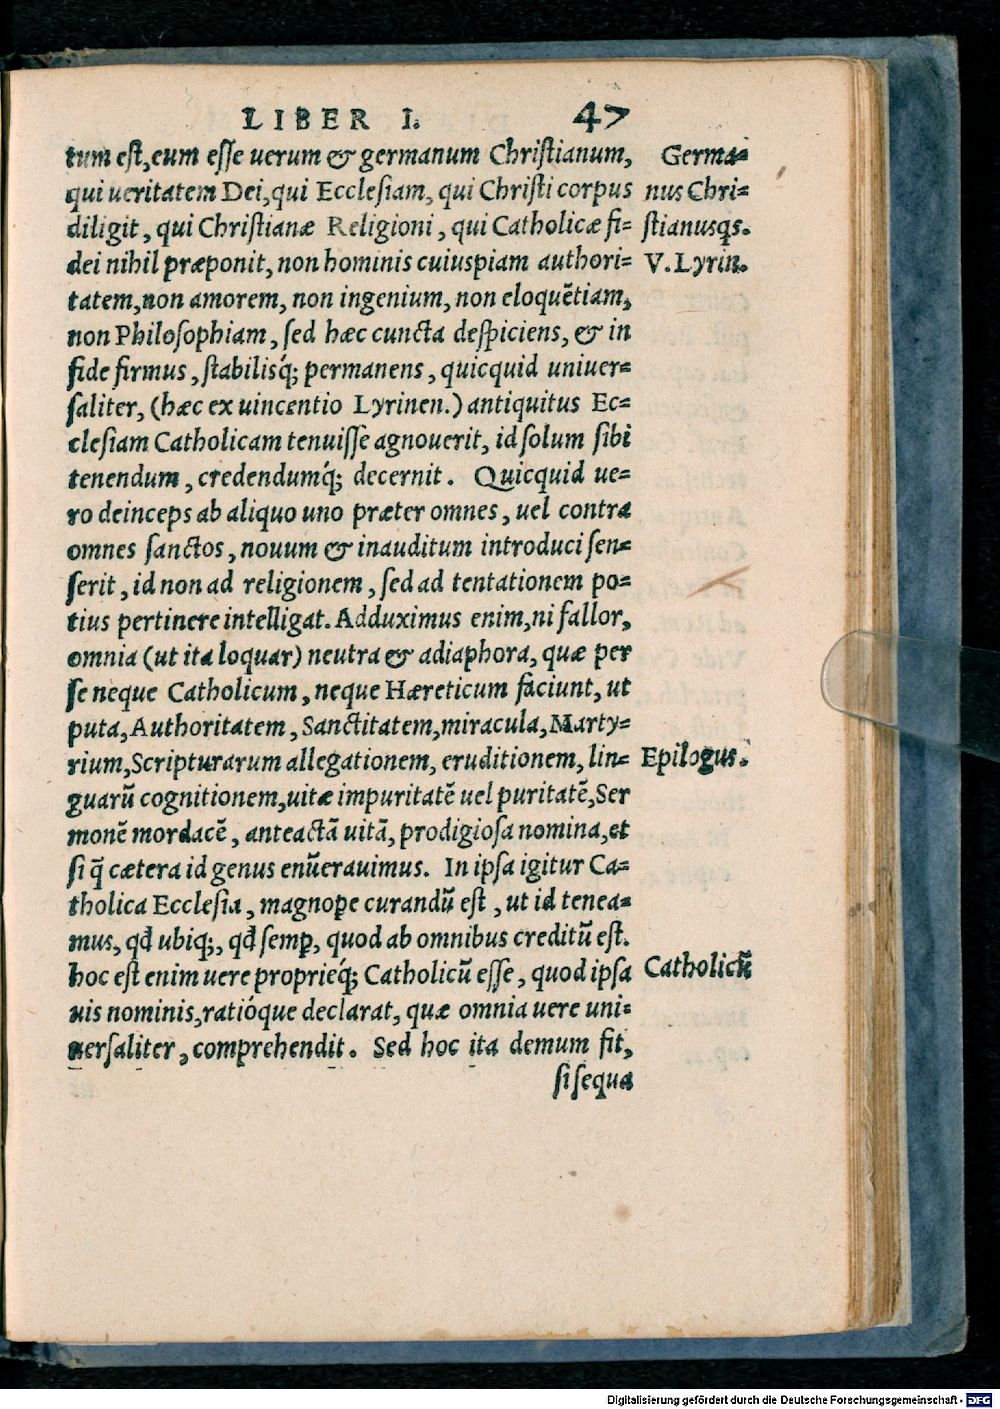 LIBER I. 47
tum est, eum esse uerum & germanum Christianum,
qui ueritatem Dei, qui Ecclesiam, qui Christi corpus
diligit, qui Christianæ Religioni, qui Catholicæ fi=
dei nihil præponit, non hominis cuiuspiam authori=
tatem, non amorem, non ingenium, non eloquẽtiam,
non Philosophiam, sed hæc cuncta despiciens, & in
fide firmus, stabilisq́; permanens, quicquid uniuer=
saliter, (hæc ex uincentio Lyrinen.) antiquitus Ec=
clesiam Catholicam tenuisse agnouerit, id solum sibi
tenendum, credendumq́; decernit. Quicquid ue=
ro deinceps ab aliquo uno præter omnes, uel contra
omnes sanctos, nouum & inauditum introduci sen=
serit, id non ad religionem, sed ad tentationem po=
tius pertinere intelligat. Adduximus enim, ni fallor,
omnia (ut ita loquar) neutra & adiaphora, quæ per
se neque Catholicum, neque Hæreticum faciunt, ut
puta, Authoritatem, Sanctitatem, miracula, Marty=
rium, Scripturarum allegationem, eruditionem, lin=
guarũ cognitionem, uitæ impuritatẽ uel puritatẽ, Ser
monẽ mordacẽ, anteactã uitã, prodigiosa nomina, et
si q̃ cætera id genus enũerauimus. In ipsa igitur Ca=
tholica Ecclesia, magnope curandũ est, ut id tenea=
mus, qđ ubiq;, qđ semꝑ, quod ab omnibus creditũ est.
hoc est enim uere proprieq́; Catholicũ esse, quod ipsa
uis nominis, ratióque declarat, quæ omnia uere uni=
uersaliter, comprehendit. Sed hoc ita demum fit,
si sequa
Germa=
nus Chri=
stianus qs.
V. Lyrin.
Epilogus.
Catholicũ
Digitalisierung gefördert durch die Deutsche Forschungsgemeinschaft - DFG